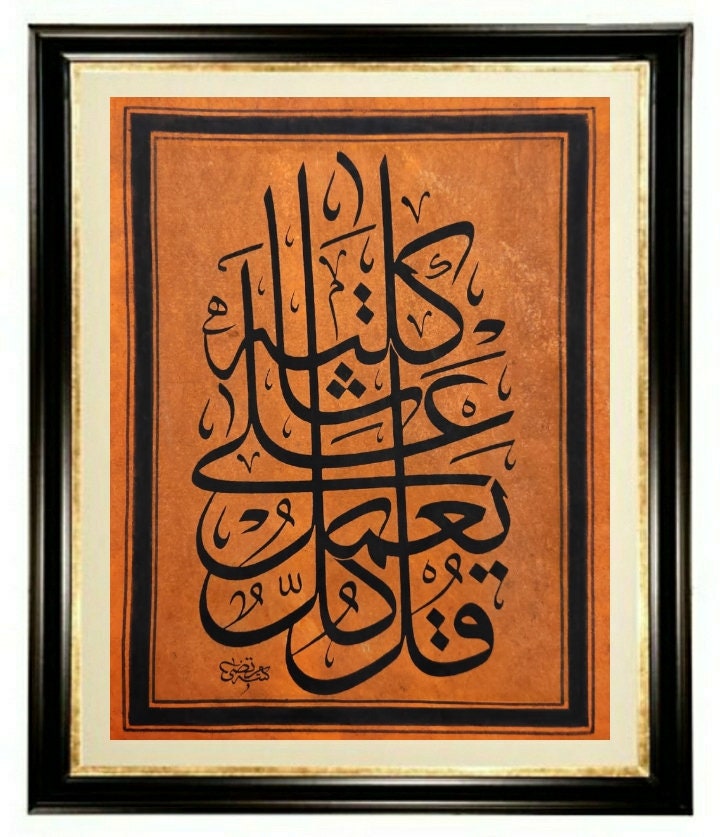 قُلْ كُلٌّ يَعْمَلُ عَلَىٰ شَاكِلَتِهِ
كتبه مرتضى